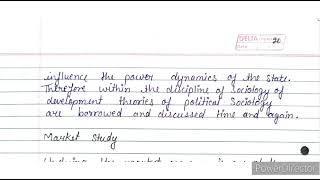 DELTA
20
influence the power dynamics of the state.
Therefore within the discipline of sociology of
development theories of political Sociology
are borrowed and discussed time and again.
Market Study
PowerDirector